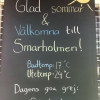 Glad sommar
&
Välkomna till
Smarholmen!
Badtemp: 17°C
Utetemp: 24°C
Dagens goa grej: